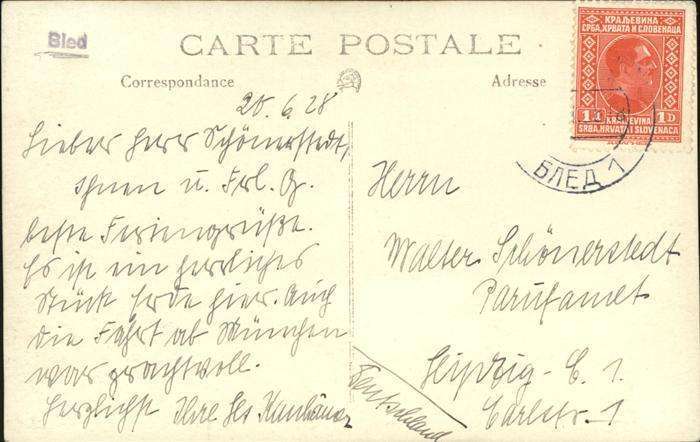 Bled
CARTE POSTALE
Correspondance
Adresse
КРАЉЕВИНА
СРБА, ХРВАТА И СЛОВЕНАЦА
1 D 1 D
KRALJEVINA
SRBA, HRVATA I SLOVENACA
БЛЕД 1
20.6.28
Lieber Herr Schönerstedt,
Ihnen u. Frl. G.
beste Feriengrüße.
Es ist ein herrliches
Stück Erde hier. Auch
die Fahrt ab München
war prachtvoll.
Herzlichst Ihre
Herrn
Walter Schönerstedt
Parufamet
Leipzig - C. 1.
Carlstr. 1
Deutschland